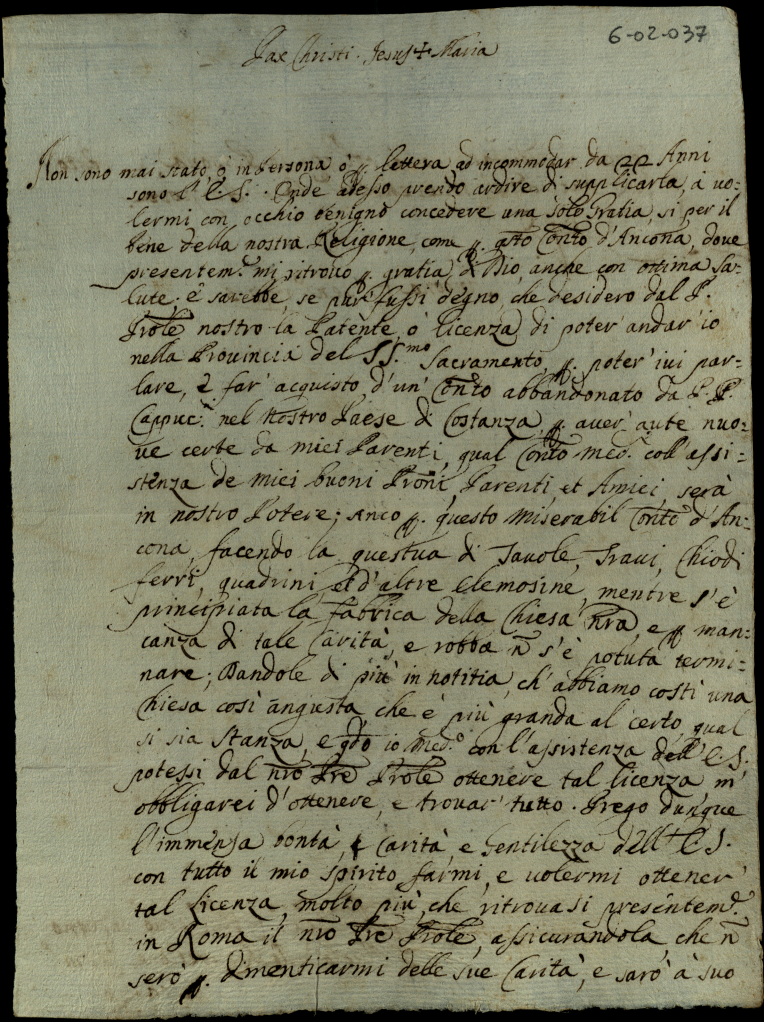 6-02-037
Pax Christi. Jesus + Maria
Non sono mai stato, ò in persona ò p. lettera ad incommodar da 22 Anni
sono l' E.S. Onde adesso prendo ardire di supplicarla, à vo-
lermi con occhio benigno concedere una solo Gratia, si per il
bene della nostra Religione, come p. qsto Conto d'Ancona, dove
presentem.e mi ritrovo p. gratia di Dio, anche con ottima Sa-
lute: e sarebbe, se pur fussi degno, che desidero dal P.
Prole nostro la Patente, ò licenza di poter' andar' io
nella Provincia del SS.mo Sacramento, p. poter' ivi par-
lare, e far' acquisto d'un' Conto abbandonato da P.P.
Cappuc.i nel Nostro Paese di Costanza, p. aver' aute nuo-
ve certe da miei Parenti, qual Conto med.o coll' assi-
stenza de miei buoni Proni, Parenti, et Amici, serà
in nostro Potere; anco p. questo miserabil Conto d'An-
cona, facendo la questua di Tavole, Travi, Chiodi
ferri, quadrini, et d'altre elemosine, mentre s'è
principiata la fabrica della Chiesa nra, e p. man-
canza di tale Carità, e robba ñ s'è potuta termi-
nare; Dandole di più in notitia, ch' abbiamo costì una
Chiesa così angusta, che è più granda al certo qual
si sia Stanza, e qdo io med.o con l'assistenza dell' E.S.
potessi dal nro Pre Prole ottenere tal licenza m'
obbligarei d'ottenere, e trovar' tutto. Prego dunque
l'immensa bontà, e Carità e Gentilezza dell' E.S.
con tutto il mio spirito farmi, e volermi ottener'
tal Licenza, molto più, che ritrovasi presentem.e
in Roma il nro Pre Prole, assicurandola, che ñ
serò p. dimenticarmi delle sue Carità, e sarò à suo